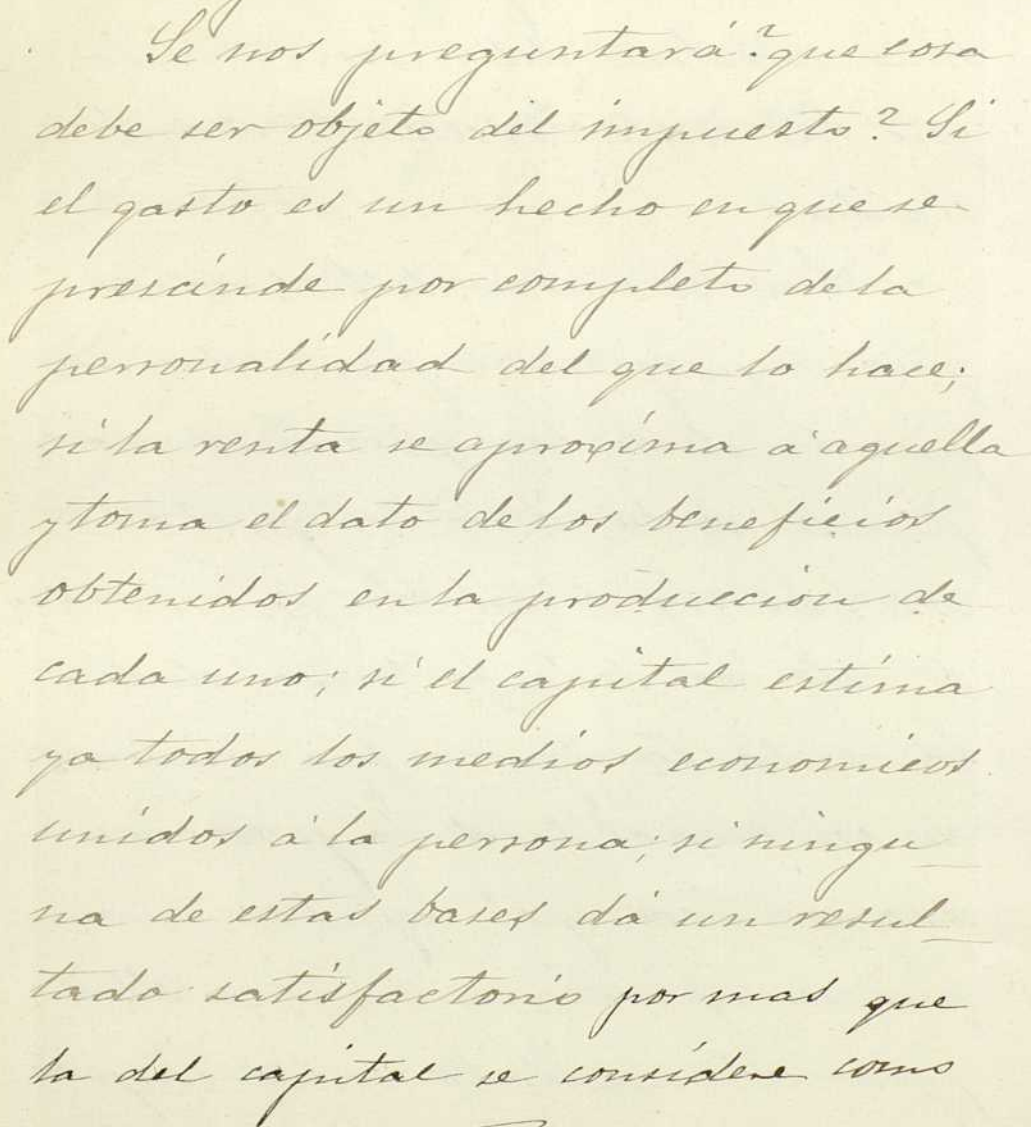 Se nos preguntará ?que cosa
debe ser objeto del impuesto? Si
el gasto es un hecho en que se
prescinde por completo de la
personalidad del que lo hace;
si la renta se aproxima á aquella
y toma el dato de los beneficios
obtenidos en la produccion de
cada uno; si el capital estima
ya todos los medios economicos
unidos á la persona; si ningu
na de estas bases dá un resul
tado satisfactorio por mas que
la del capital se considere como